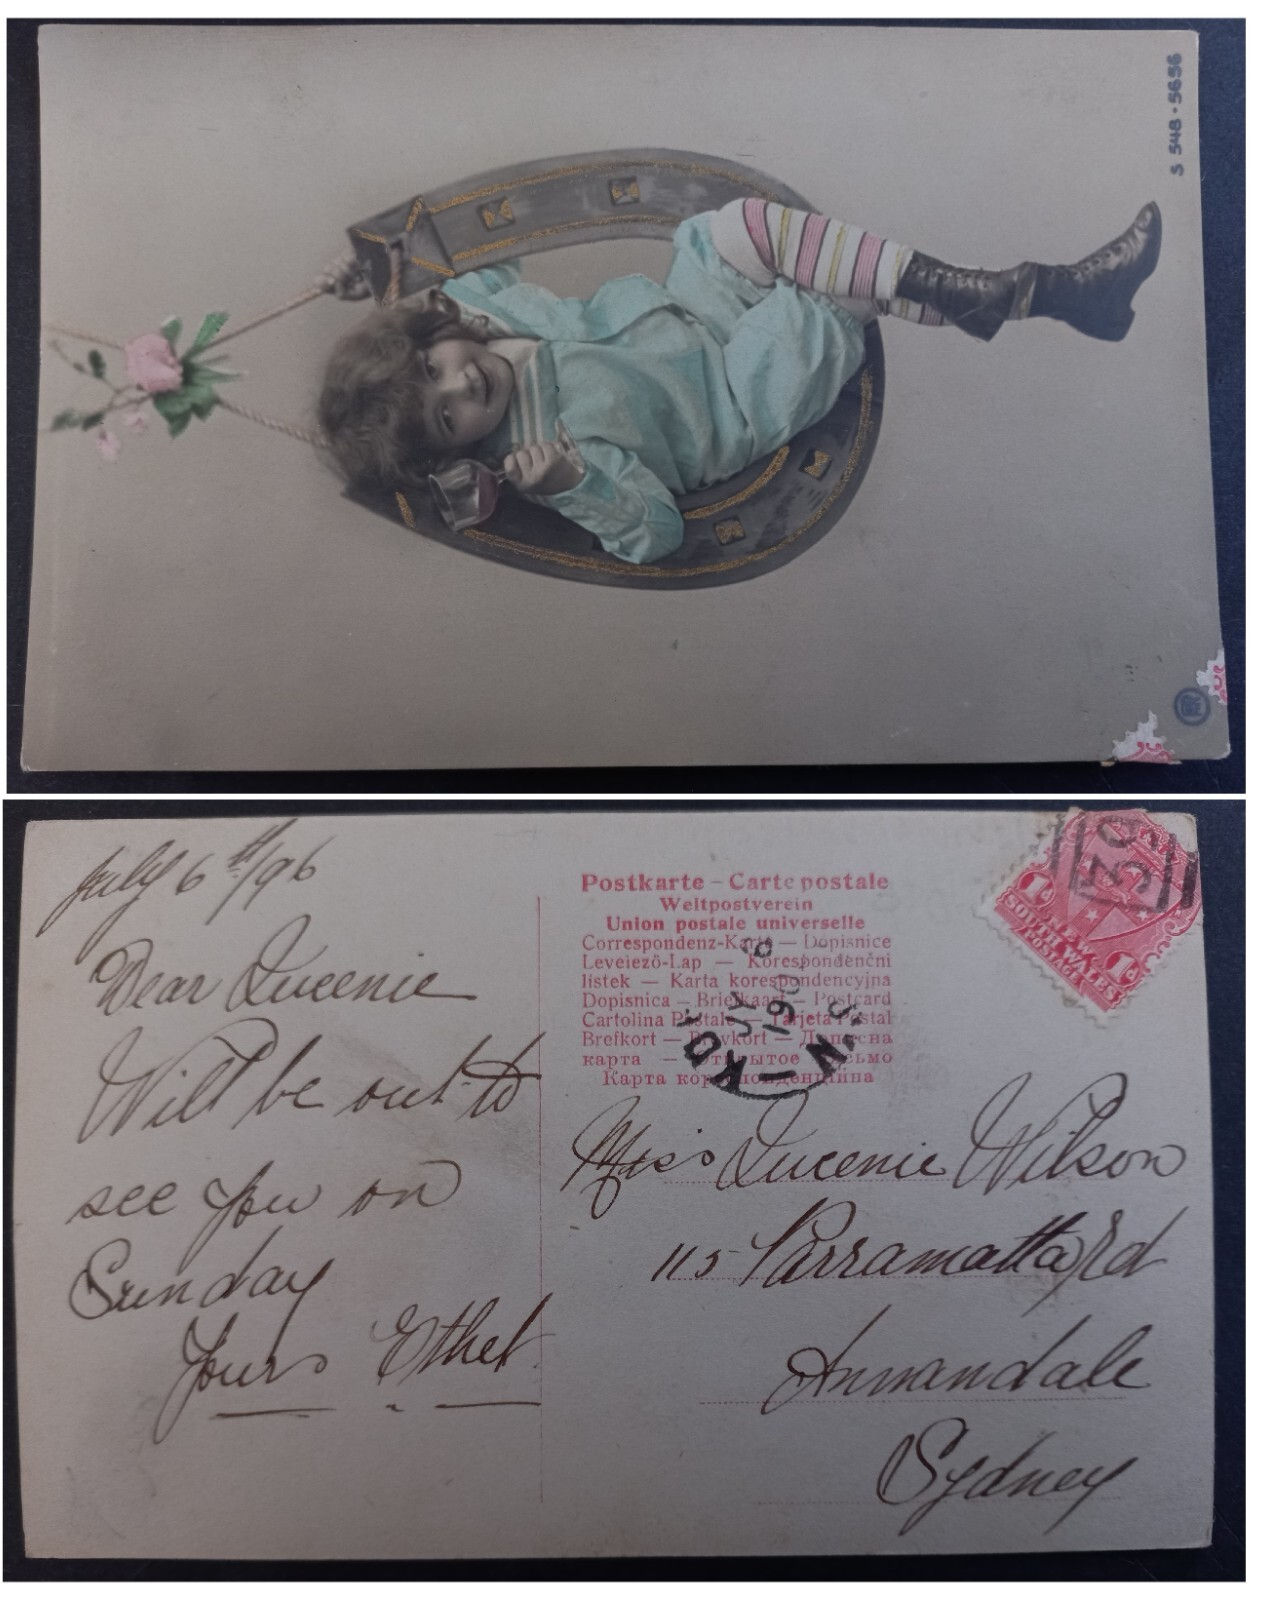 S 548 - 5656
July 6th/96
Dear Lucenie
Will be out to
see you on
Sunday
Yours Ethel
Postkarte – Carte postale
Weltpostverein
Union postale universelle
Correspondenz-Karte — Dopisnice
Levelező-Lap — Korespondenční
listek — Karta korespondencyjna
Dopisnica — Briefkaart — Postcard
Cartolina Postale — Tarjeta Postal
Brefkort — Brevkort — Дописна
карта — Открытое письмо
Карта кореспонденцiйна
JY
190
1d 1d
NEW
SOUTH WALES
POSTAGE
Miss Lucenie Wilson
115 Parramatta Rd
Annandale
Sydney